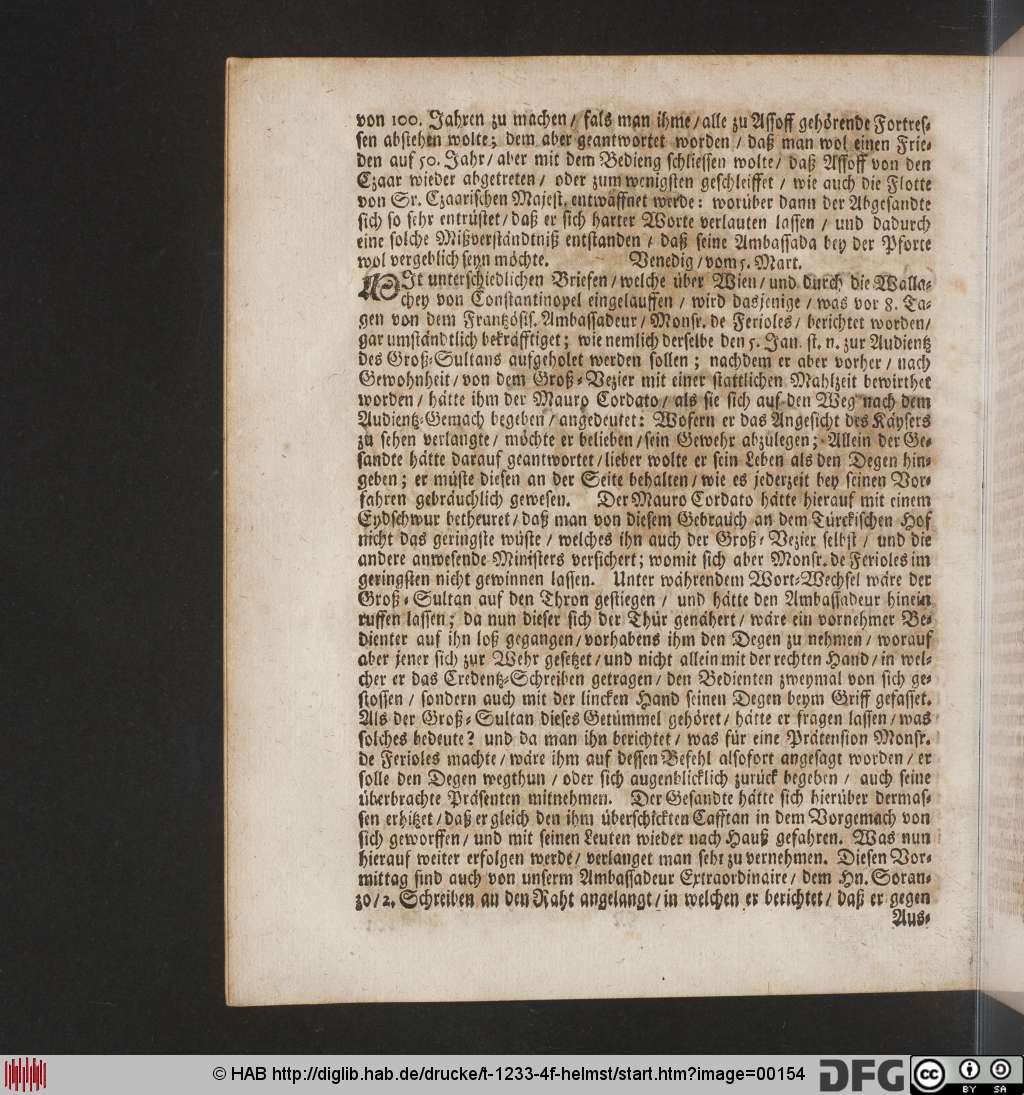 von 100. Jahren zu machen / fals man ihme / alle zu Assoff gehörende Fortres-
sen abstehen wolte; dem aber geantwortet worden / daß man wol einen Frie-
den auf 50. Jahr / aber mit dem Bedieng schliessen wolte / daß Assoff von den
Czaar wieder abgetreten / oder zum wenigsten geschleiffet / wie auch die Flotte
von Sr. Czaarischen Majest. entwaffnet werde: worüber dann der Abgesandte
sich so sehr entrüstet / daß er sich harter Worte verlauten lassen / und dadurch
eine solche Mißverständtniß entstanden / daß seine Ambassada bey der Pforte
wol vergeblich seyn möchte. Venedig / vom 5. Mart.
MIt unterschiedlichen Briefen / welche über Wien / und durch die Walla-
chey von Constantinopel eingelauffen / wird dasjenige / was vor 8. Ta-
gen von dem Frantzösis. Ambassadeur / Monsr. de Ferioles / berichtet worden /
gar umständtlich bekräfftiget; wie nemlich derselbe den 5. Jan. st. n. zur Audientz
des Groß-Sultans aufgeholet werden sollen; nachdem er aber vorher / nach
Gewohnheit / von dem Groß-Vezier mit einer stattlichen Mahlzeit bewirthet
worden / hätte ihm der Mauro Cordato / als sie sich auf den Weg nach dem
Audientz-Gemach begeben / angedeutet: Wofern er das Angesicht des Käysers
zu sehen verlangte / möchte er belieben / sein Gewehr abzulegen; Allein der Ge-
sandte hätte darauf geantwortet / lieber wolte er sein Leben als den Degen hin-
geben; er müste diesen an der Seite behalten / wie es jederzeit bey seinen Vor-
fahren gebräuchlich gewesen. Der Mauro Cordato hätte hierauf mit einem
Eydschwur betheuret / daß man von diesem Gebrauch an dem Türckischen Hof
nicht das geringste wüste / welches ihn auch der Groß-Vezier selbst / und die
andere anwesende Ministers versichert; womit sich aber Monsr. de Ferioles im
geringsten nicht gewinnen lassen. Unter währendem Wort-Wechsel wäre der
Groß-Sultan auf den Thron gestiegen / und hätte den Ambassadeur hinein
ruffen lassen; da nun dieser sich der Thür genähert / wäre ein vornehmer Be-
dienter auf ihn loß gegangen / vorhabens ihm den Degen zu nehmen / worauf
aber jener sich zur Wehr gesetzet / und nicht allein mit der rechten Hand / in wel-
cher er das Credentz-Schreiben getragen / den Bedienten zweymal von sich ge-
stossen / sondern auch mit der lincken Hand seinen Degen beym Griff gefasset.
Als der Groß-Sultan dieses Getümmel gehöret / hätte er fragen lassen / was
solches bedeute? und da man ihn berichtet / was für eine Prätension Monsr.
de Ferioles machte / wäre ihm auf dessen Befehl alsofort angesagt worden / er
solle den Degen wegthun / oder sich augenblicklich zurück begeben / auch seine
überbrachte Präsenten mitnehmen. Der Gesandte hätte sich hierüber dermas-
sen erhitzet / daß er gleich den ihm überschickten Cafftan in dem Vorgemach von
sich geworffen / und mit seinen Leuten wieder nach Hauß gefahren. Was nun
hierauf weiter erfolgen werde / verlanget man sehr zu vernehmen. Diesen Vor-
mittag sind auch von unserm Ambassadeur Extraordinaire / dem Hn. Soran-
zo / 2. Schreiben an den Raht angelangt / in welchen er berichtet / daß er gegen
Aus-
© HAB http://diglib.hab.de/drucke/t-1233-4f-helmst/start.htm?image=00154
DFG
cc
BY SA